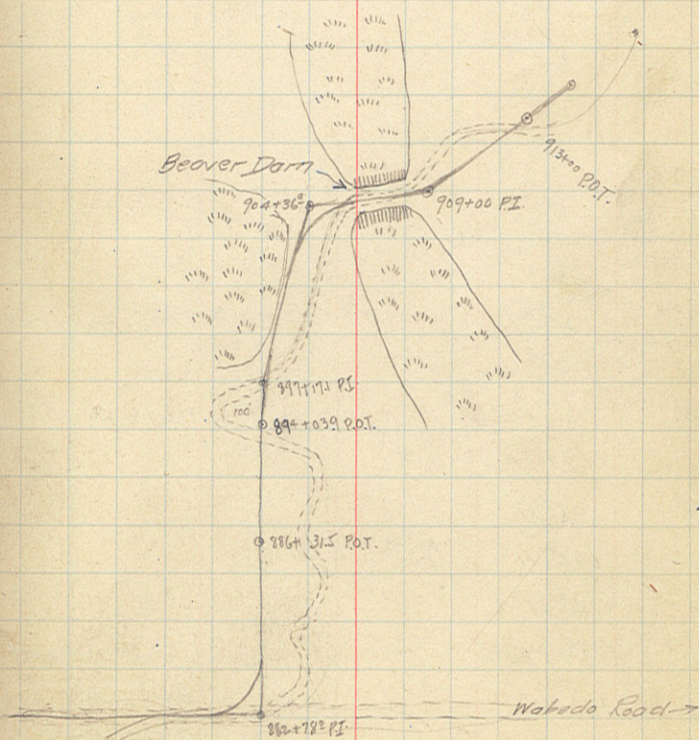 Beaver Dam
904+36⁵
909+00 P.I.
913+00 P.O.T.
897+17.1 P.I.
100'
894+03.9 P.O.T.
886+31.5 P.O.T.
882+78² P.I.
Wabedo Road →